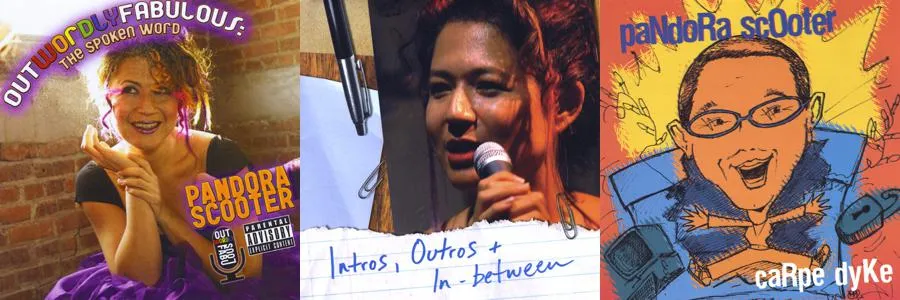 OUTWORDLYFABULOUS:
THE SPOKEN WORD
PANDORA
SCOOTER
PARENTAL
ADVISORY
EXPLICIT CONTENT
Intros, Outros +
In-between
paNdoRa scOoter
caRpe dyKe